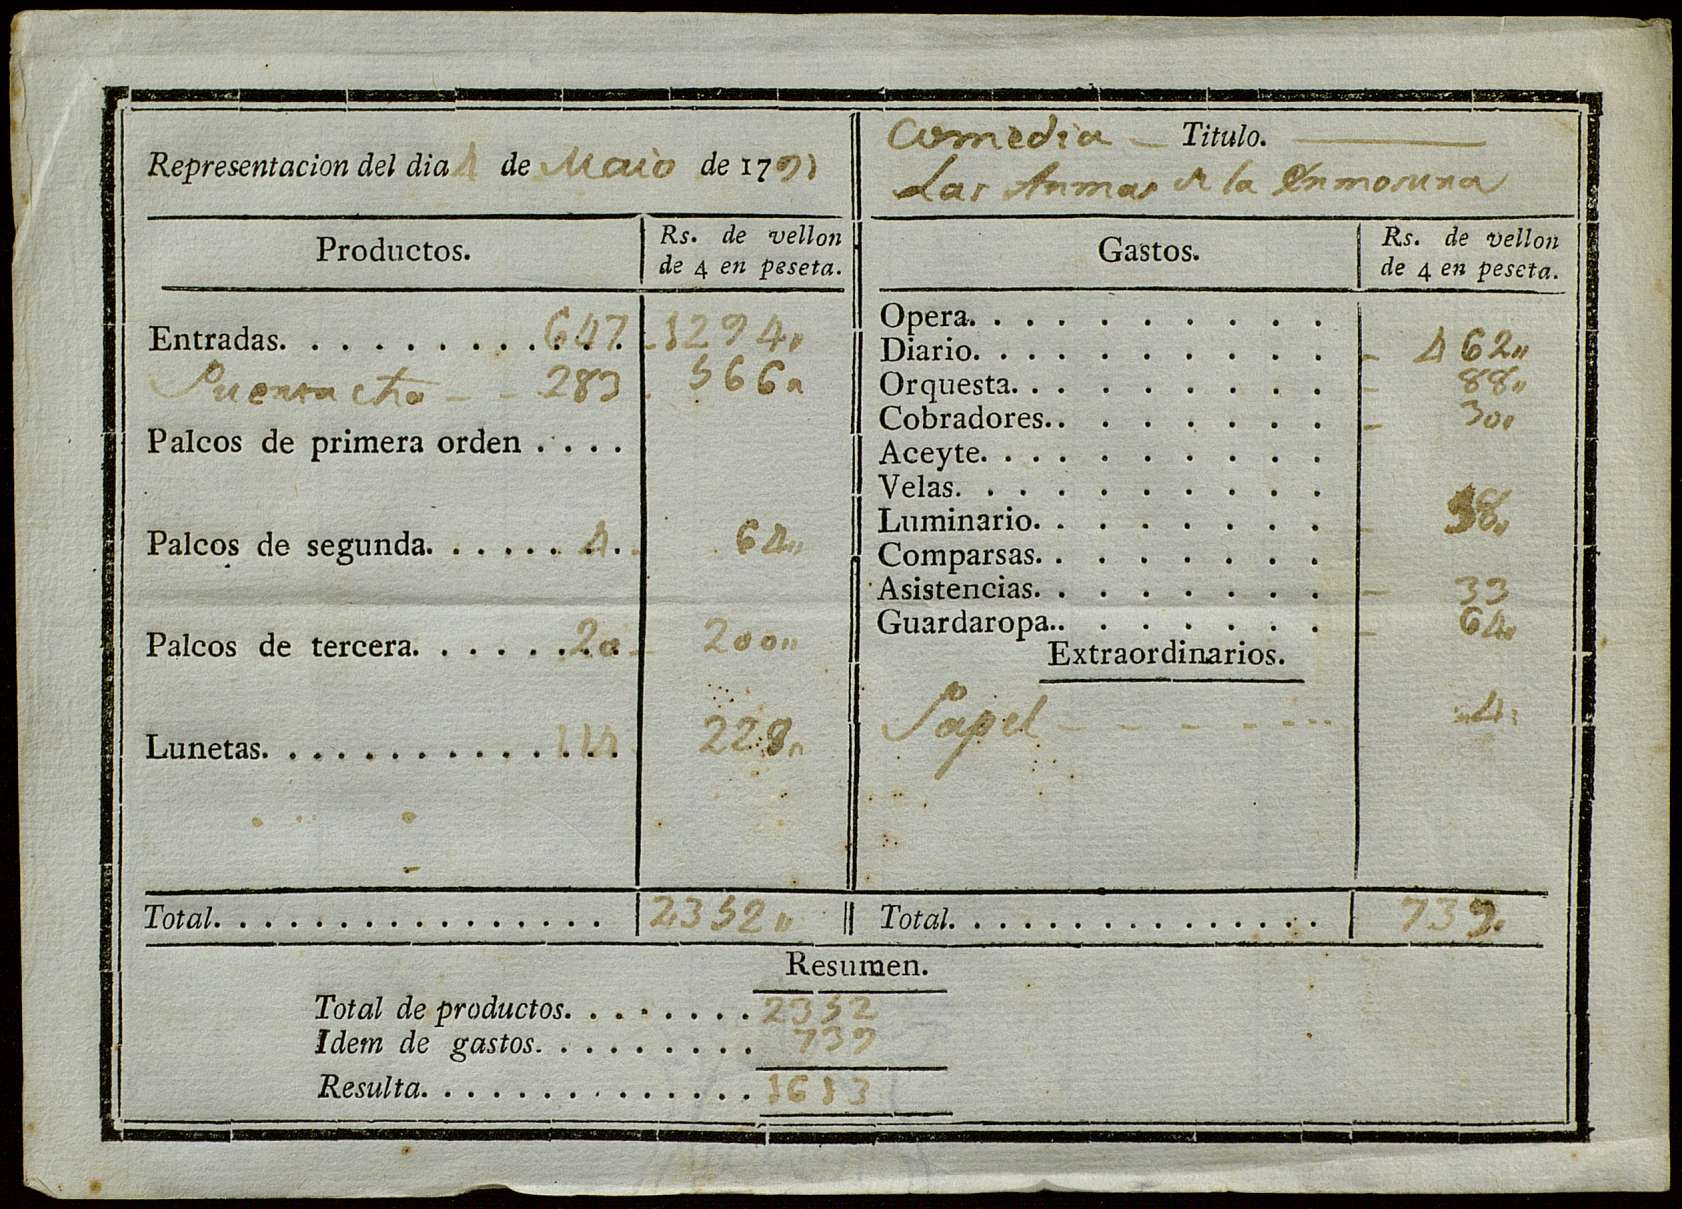 Representacion del dia 4 de Maio de 1791
Comedia Titulo.
Las Armas de la
Productos.
Rs. de vellon
de 4 en peseta.
Entradas. 647 1294
283 566
Palcos de primera orden
Palcos de segunda. 4 64
Palcos de tercera. 20 200
Lunetas. 114 228
Total. 2352
Gastos.
Rs. de vellon
de 4 en peseta.
Opera.
Diario. 462
Orquesta. 88
Cobradores. 30
Aceyte.
Velas.
Luminario. 58
Comparsas.
Asistencias. 33
Guardaropa. 64
Extraordinarios.
Papel 4
Total. 739
Resumen.
Total de productos. 2352
Idem de gastos. 739
Resulta. 1613